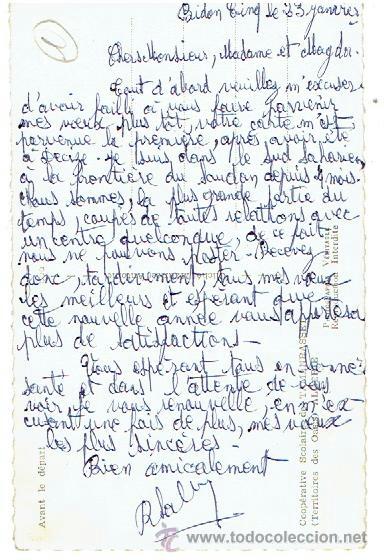 Bidon Cinq le 23 janvier
Chers Monsieur, Madame et Magda.
Tout d'abord veuillez m'excuser
d'avoir failli à vous faire parvenir
mes vœux plus tôt, votre carte m'est
parvenue la première, après avoir été
à . Je suis dans le sud saharien
à la frontière du Soudan depuis 4 mois.
Nous sommes, la plus grande partie du
temps, coupés de toutes relations avec
un centre quelconque, de ce fait
nous ne pouvons poster. Recevez
donc, tardivement, tous mes vœux
les meilleurs et espérant que
cette nouvelle année vous apportera
plus de satisfactions -
Vous espérant tous en bonne
santé et dans l'attente de vous
voir, je vous renouvelle, en m'ex
cusant une fois de plus, mes vœux
les plus sincères -
Bien amicalement
Avant le départ
Coopérative Scolaire de TAMANRASSET
(Territoires des Oasis) ALGÉRIE
Reproduction Interdite
www.todocoleccion.net